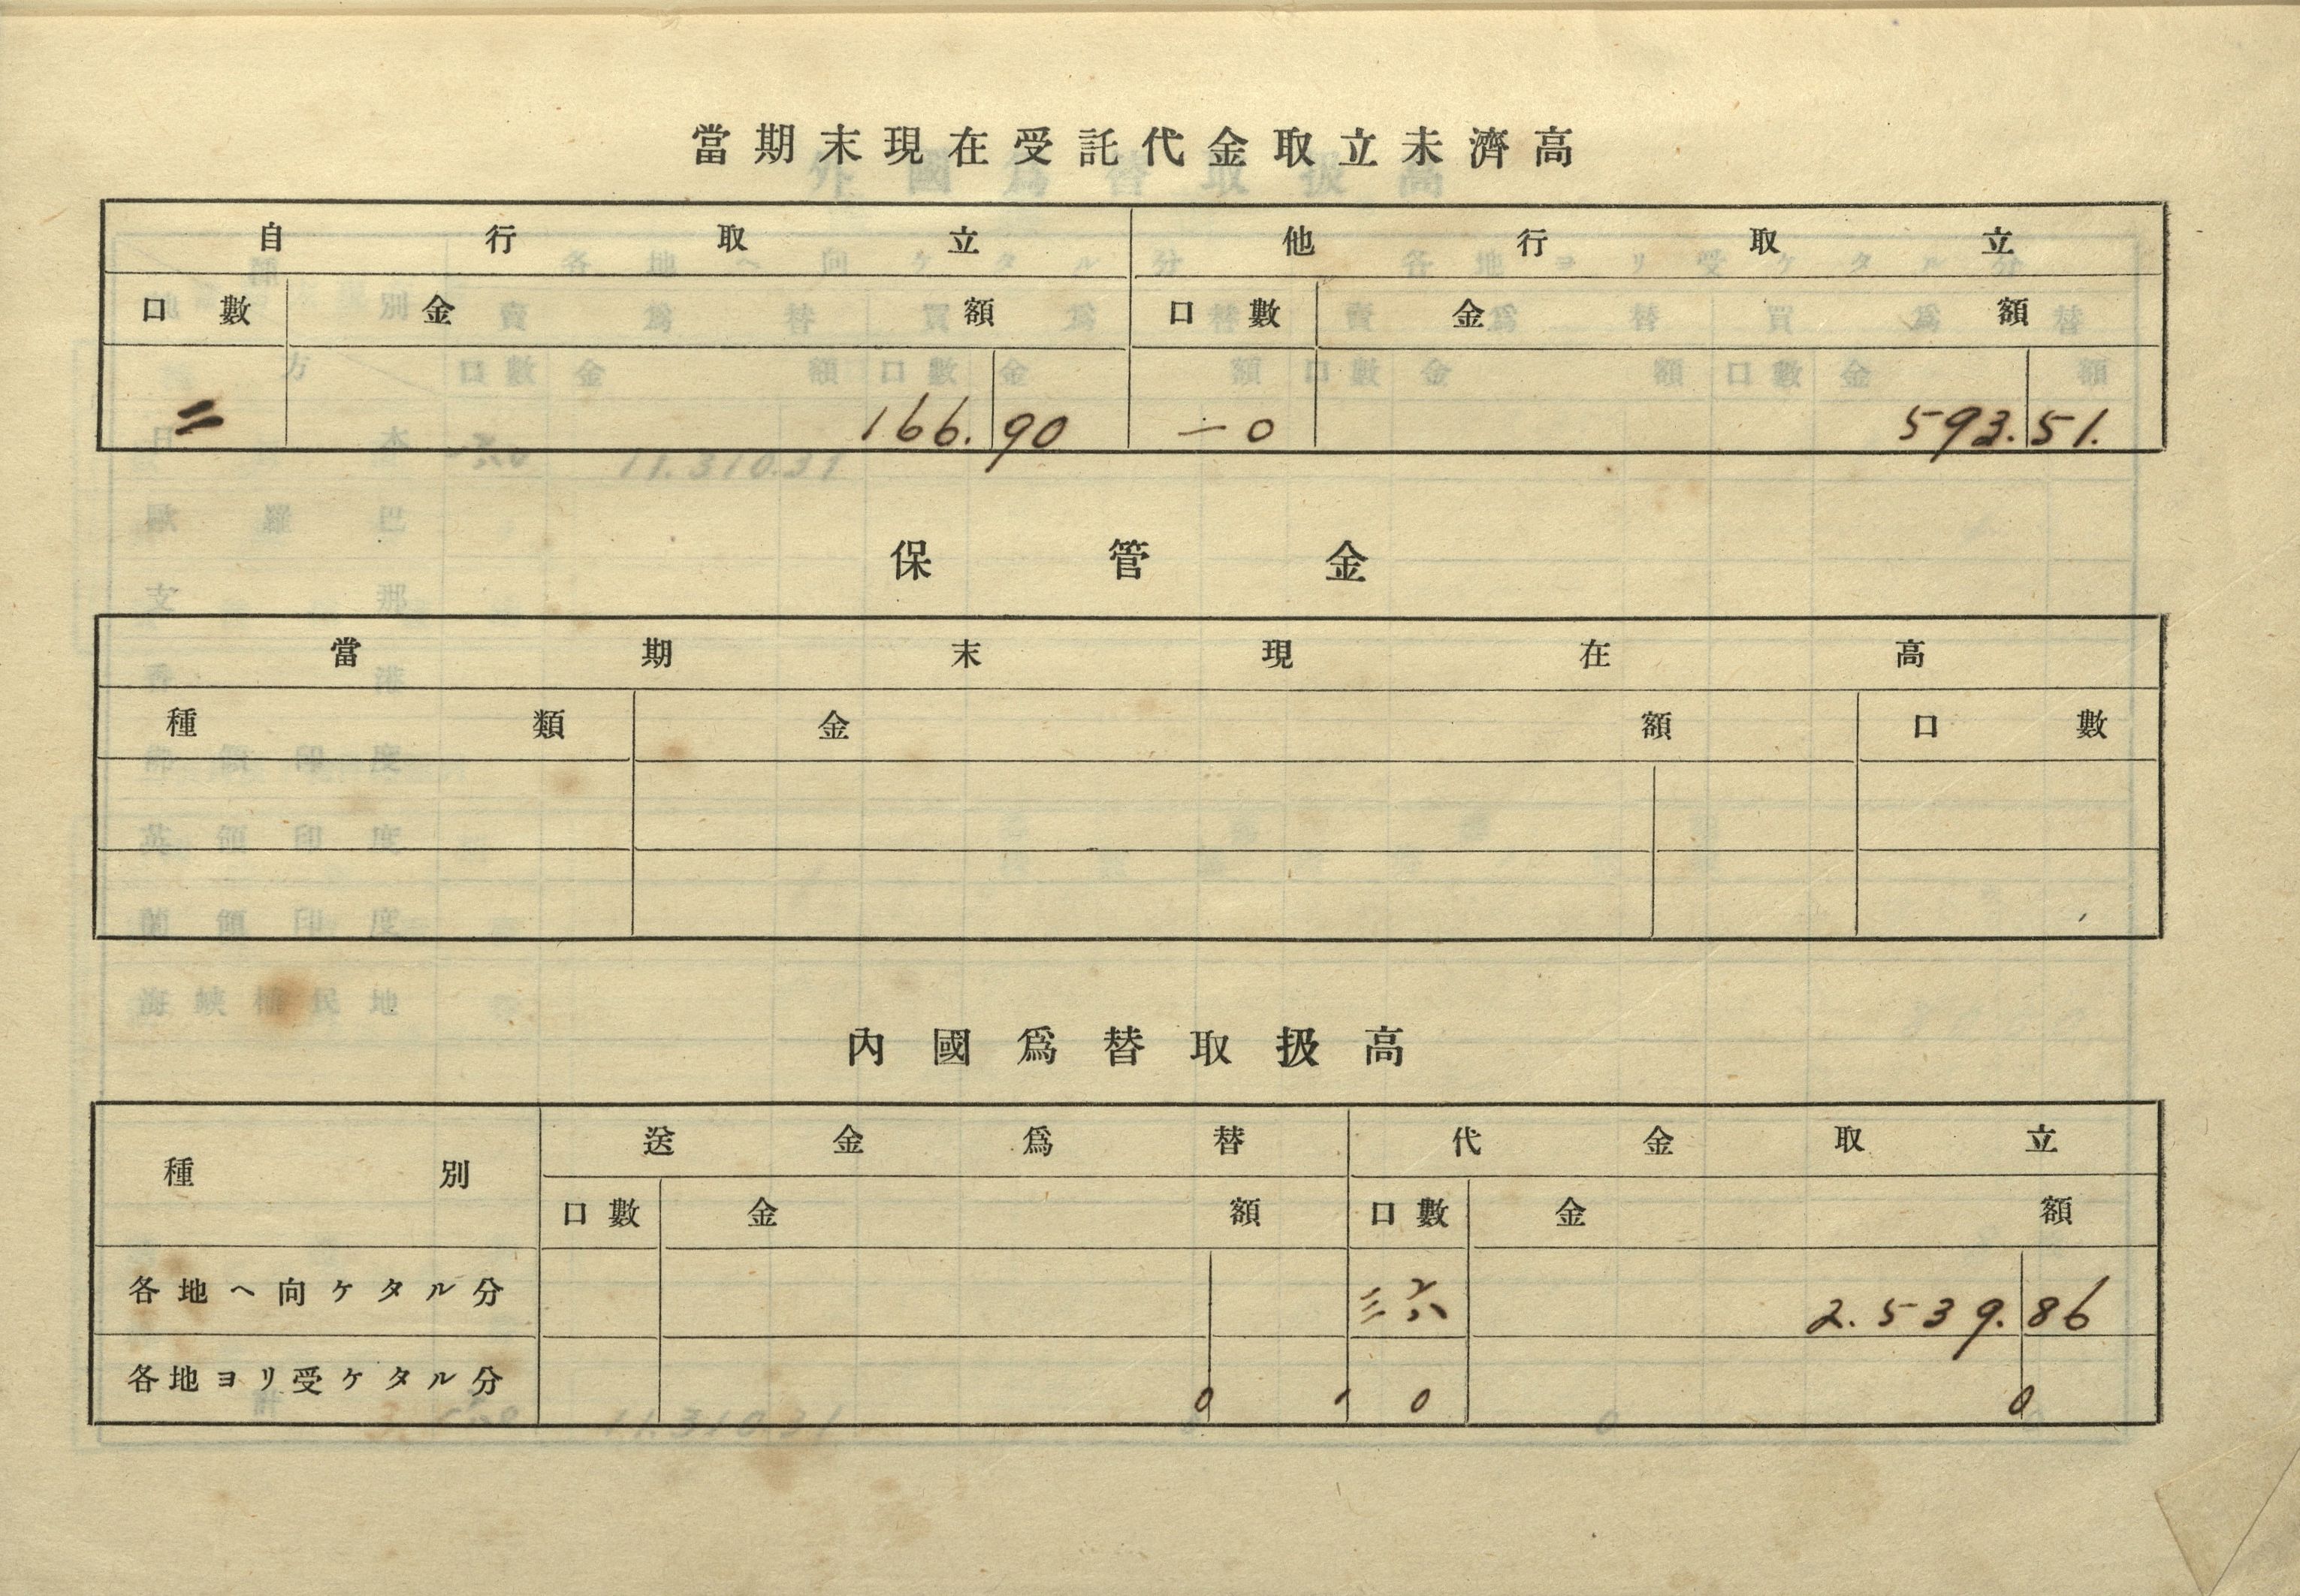 當期末現在受託代金取立未濟高
自行取立 他行取立
口數 金額 口數 金額
二 166.90 一0 593.51.
保管金
當期末現在高
種類 金額 口數
內國爲替取扱高
種別 送金爲替 代金取立
口數 金額 口數 金額
各地ヘ向ケタル分 三六 2.539.86
各地ヨリ受ケタル分 0 0 0